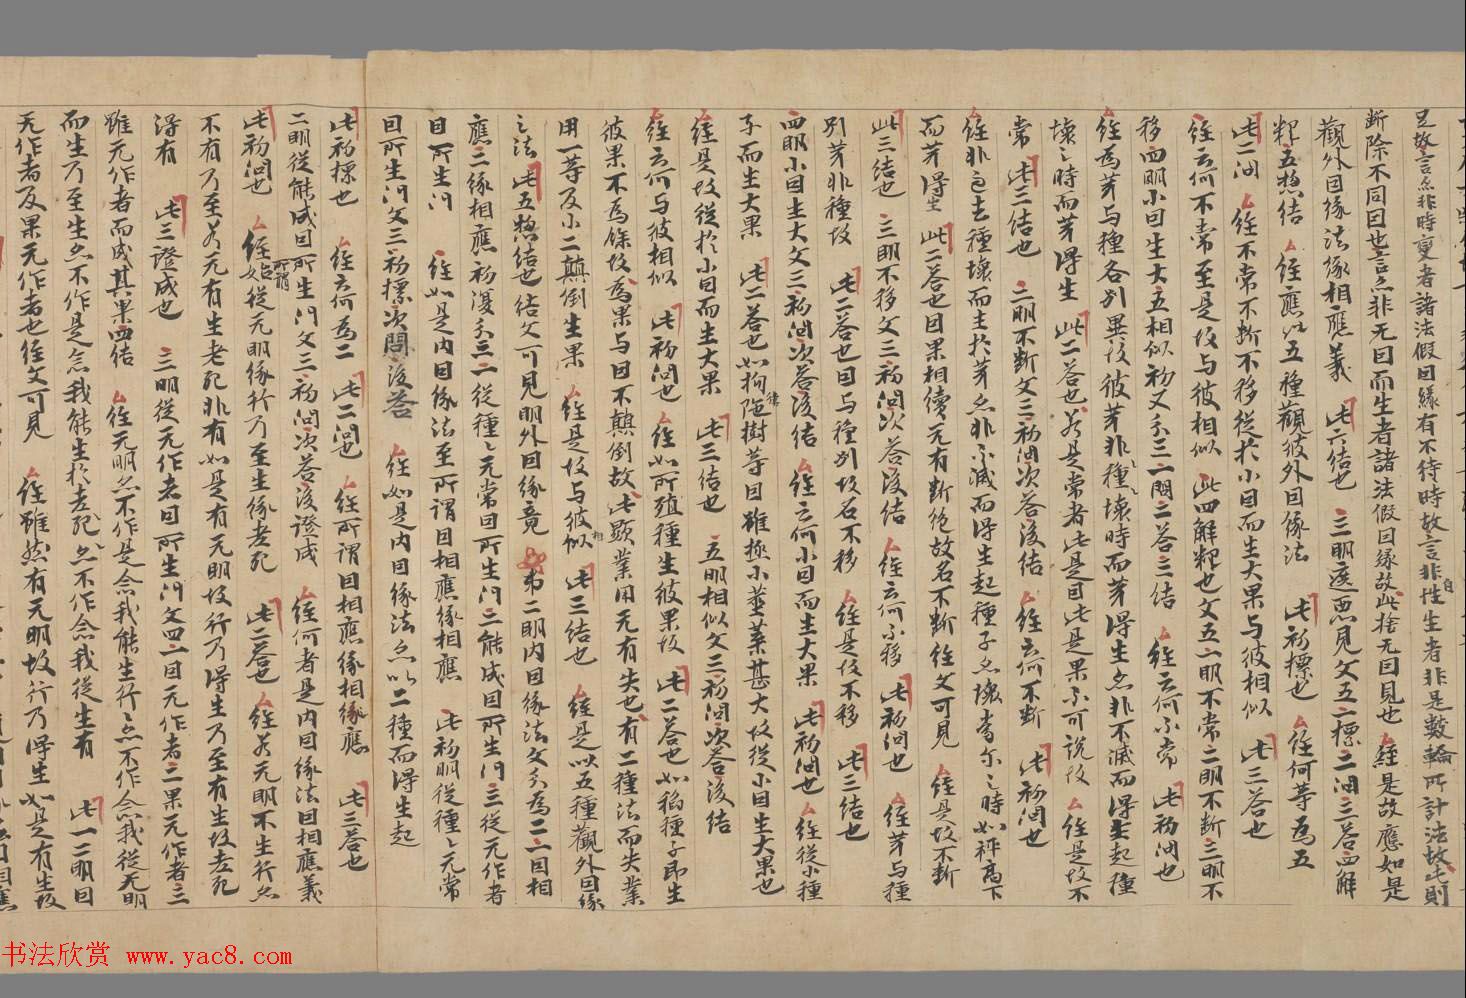 見故言亦非時變者諸法假因緣有不待時故言非自性生者非是數輪所計法故此則
斷除不同因也言亦非无因而生者諸法假因緣故此捨无因見也 經是故應如是
觀外因緣法緣相應義 此六結也 三明遮惡見文五一標二問三答四解
釋五惣結 經應以五種觀彼外因緣法 此初標也 經何等為五
此二問 經不常不斷不移從於小因而生大果与彼相似 此三答也
經云何不常至是故与彼相似 此四解釋也文五一明不常二明不斷三明不
移四明小因生大五相似初文分三一問二答三結 經云何不常 此初問也
經為芽与種各別異故彼芽非種種壞時而芽得生亦非不滅而得生起種
壞之時而芽得生 此二答也若是常者此是因此是果不可說故 經是故不
常 此三結也 二明不斷文三初問次答後結 經云何不斷 此初問也
經非過去種壞而生於芽亦非不滅而得生起種子亦壞當尔之時如秤高下
而芽得生 此二答也因果相續无有斷絕故名不斷經文可見 經是故不斷
此三結也 三明不移文三初問次答後結 經云何不移 此初問也 經芽与種
別芽非種故 此二答也因与種別故名不移 經是故不移 此三結也
四明小因生大文三初問次答後結 經云何小因而生大果 此初問也 經從小種
子而生大果 此二答也如拘陁樹等因雖極小莖菓甚大故從小因生大果也
經是故從於小因而生大果 此三結也 五明相似文三初問次答後結
經云何与彼相似 此初問也 經如所殖種生彼果故 此二答也如稻種子即生
彼果不爲餘故爲果与因不顛倒故此顯業用无有失也有二種法而失業
用一等及小二顛倒生果 經是故与彼相似 此三結也 經是以五種觀外因緣
之法 此五惣結也結文可見明外因緣竟 第二明內因緣法文分為二一因相
應二緣相應初復分三一從種種无常因所生門二能成因所生門三從无作者
因所生門 經如是內因緣法至所謂因相應緣相應 此初明從種種无常
因所生門文三初標次問後答 經如是內因緣法亦以二種而得生起
此初標也 經云何為二 此二問也 經所謂因相應緣相應 此三答也
二明從能成因所生門文三初問次答後證成 經何者是內因緣法因相應義
此初問也 經所謂始從无明緣行乃至生緣老死 此二答也 經若无明不生行亦
不有乃至若无有生老死非有如是有无明故行乃得生乃至有生故老死
得有 此三證成也 三明從无作者因所生門文四一因无作者二果无作者三
雖无作者而成其果四結 經无明亦不作是念我能生行行亦不作念我從无明
而生乃至生亦不作是念我能生於老死老死亦不作念我從生有 此一二明因
无作者及果无作者也經文可見 經雖然有无明故行乃得生如是有生故
书法欣赏 www.yac8.com